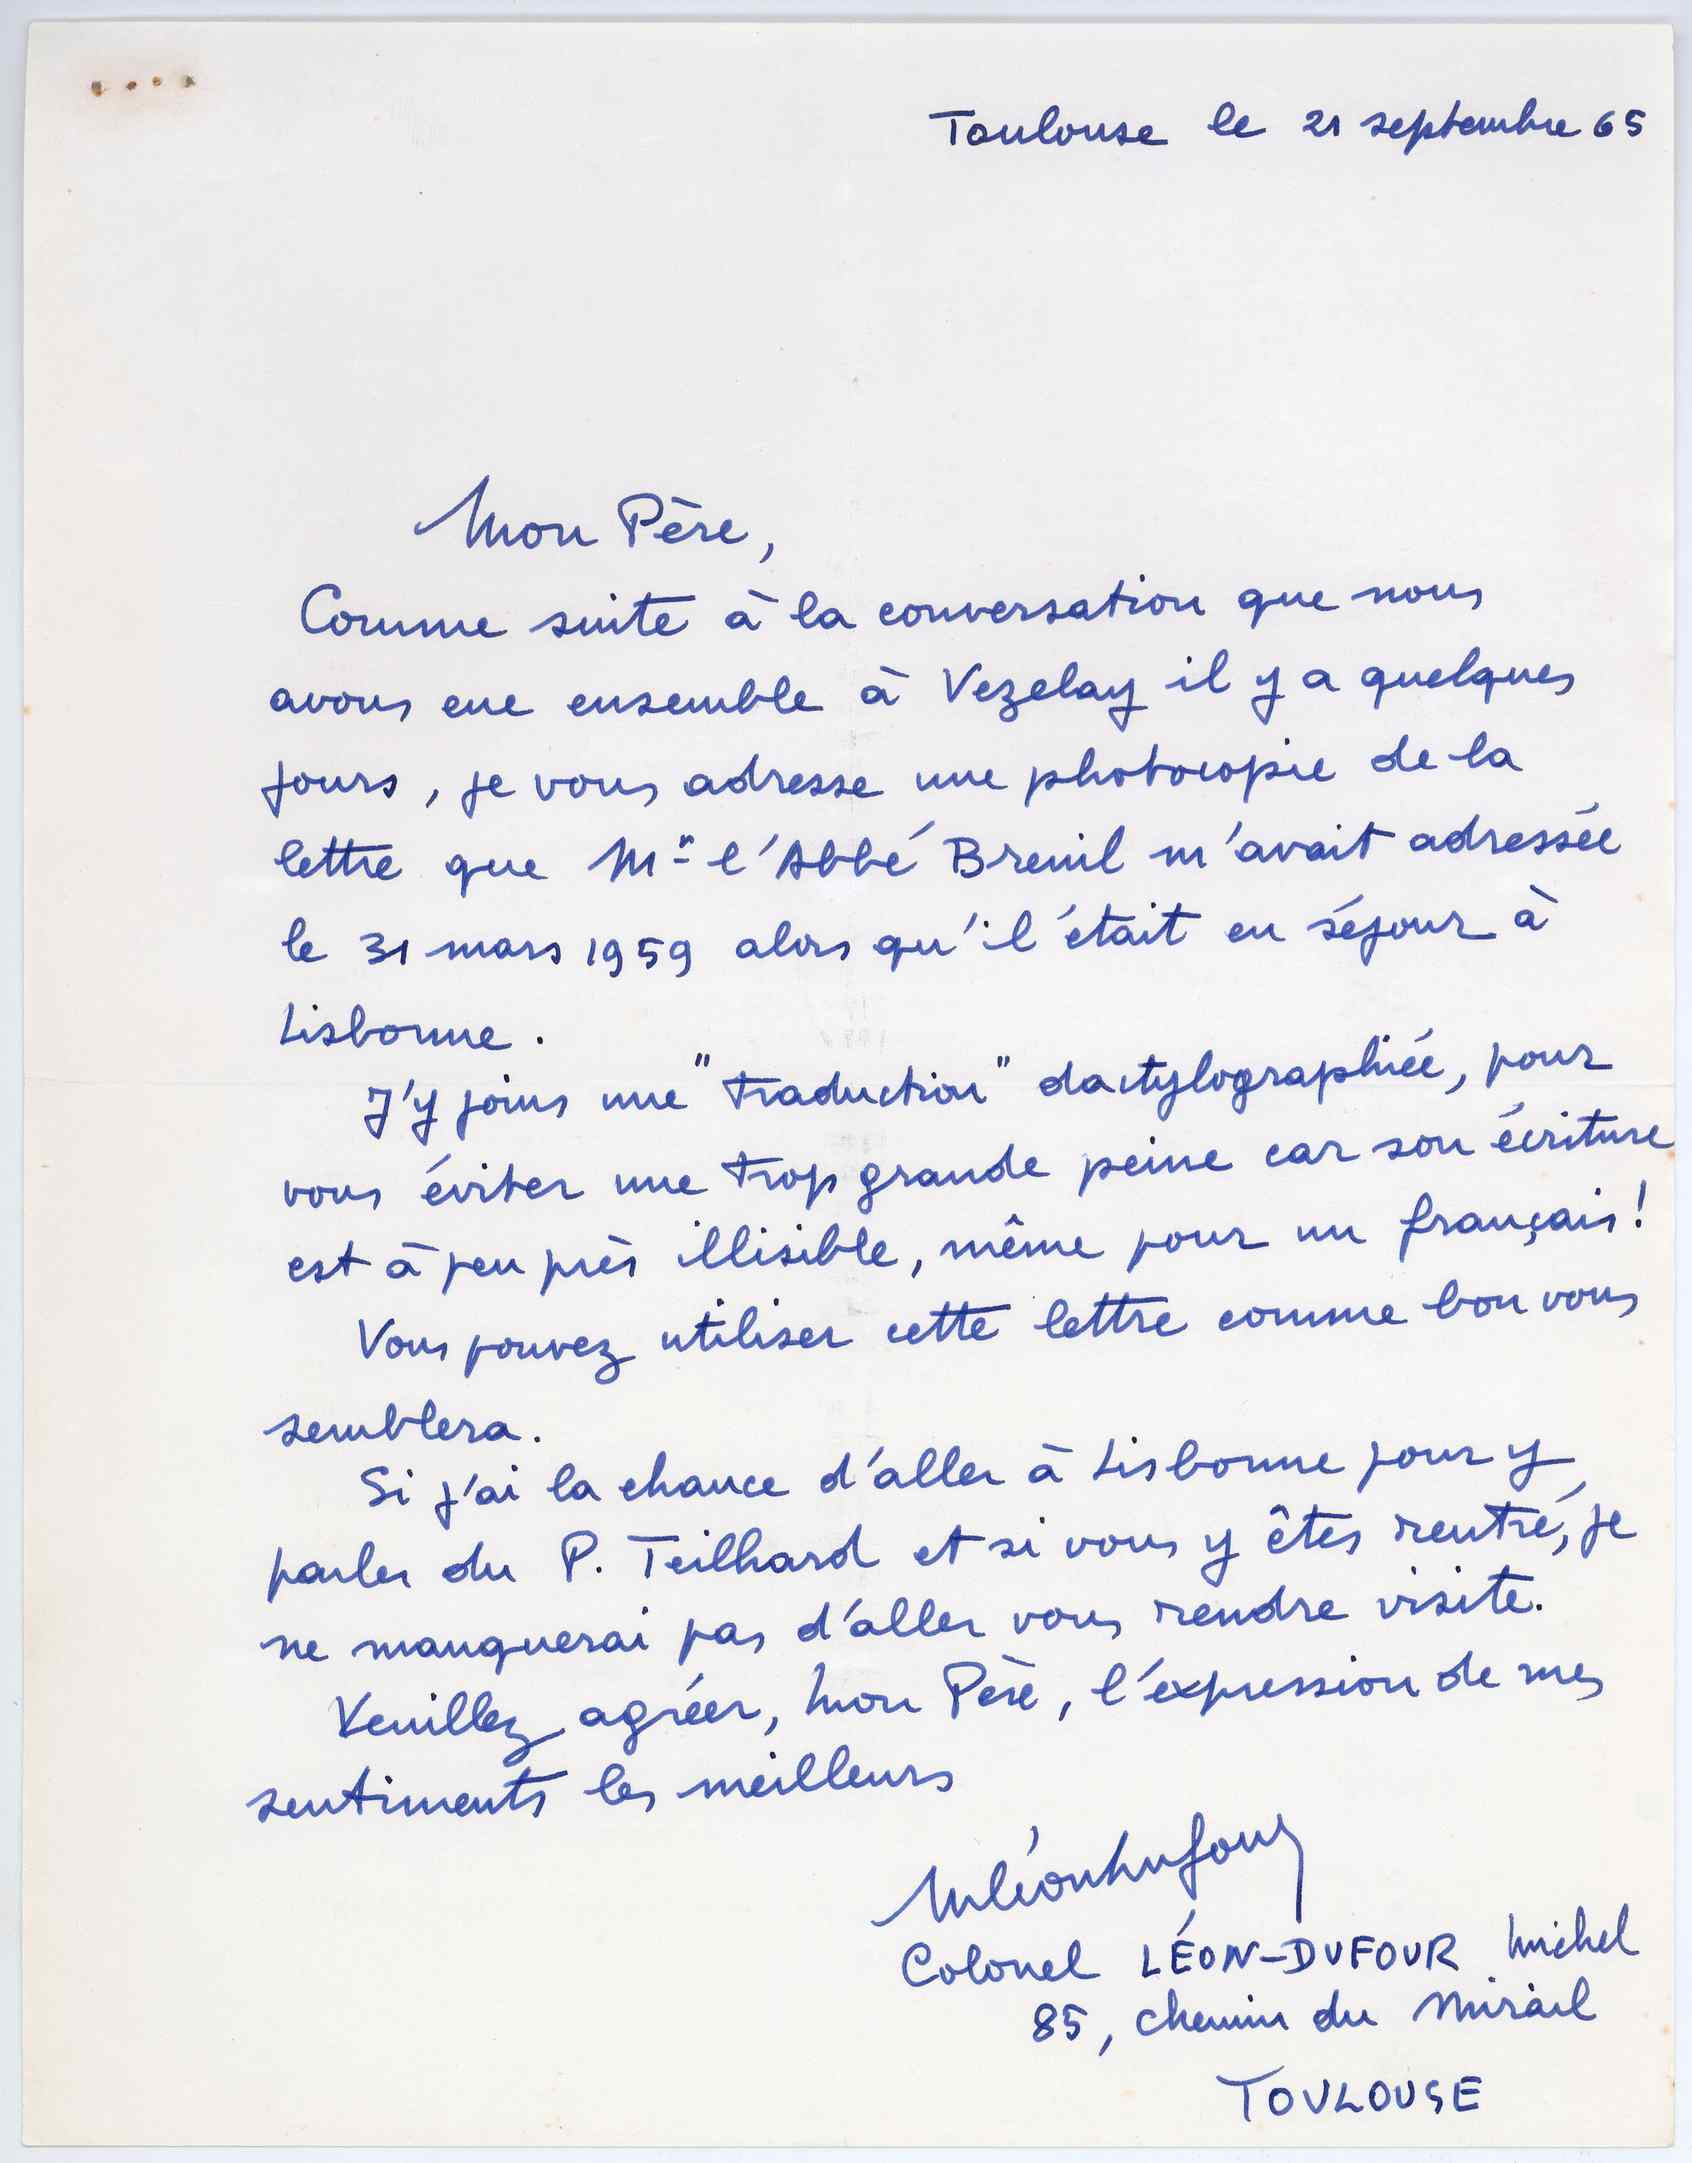 Toulouse le 21 septembre 65
Mon Père,
Comme suite à la conversation que nous
avons eue ensemble à Vezelay il y a quelques
jours, je vous adresse une photocopie de la
lettre que Mr l'Abbé Breuil m'avait adressée
le 31 mars 1959 alors qu'il était en séjour à
Lisbonne.
J'y joins une "traduction" dactylographiée, pour
vous éviter une trop grande peine car son écriture
est à peu près illisible, même pour un français!
Vous pouvez utiliser cette lettre comme bon vous
semblera.
Si j'ai la chance d'aller à Lisbonne pour y
parler du P. Teilhard et si vous y êtes rentré, je
ne manquerai pas d'aller vous rendre visite.
Veuillez agréer, Mon Père, l'expression de mes
sentiments les meilleurs
MLéonDufour
Colonel LÉON-DUFOUR Michel
85, chemin du Mirail
TOULOUSE